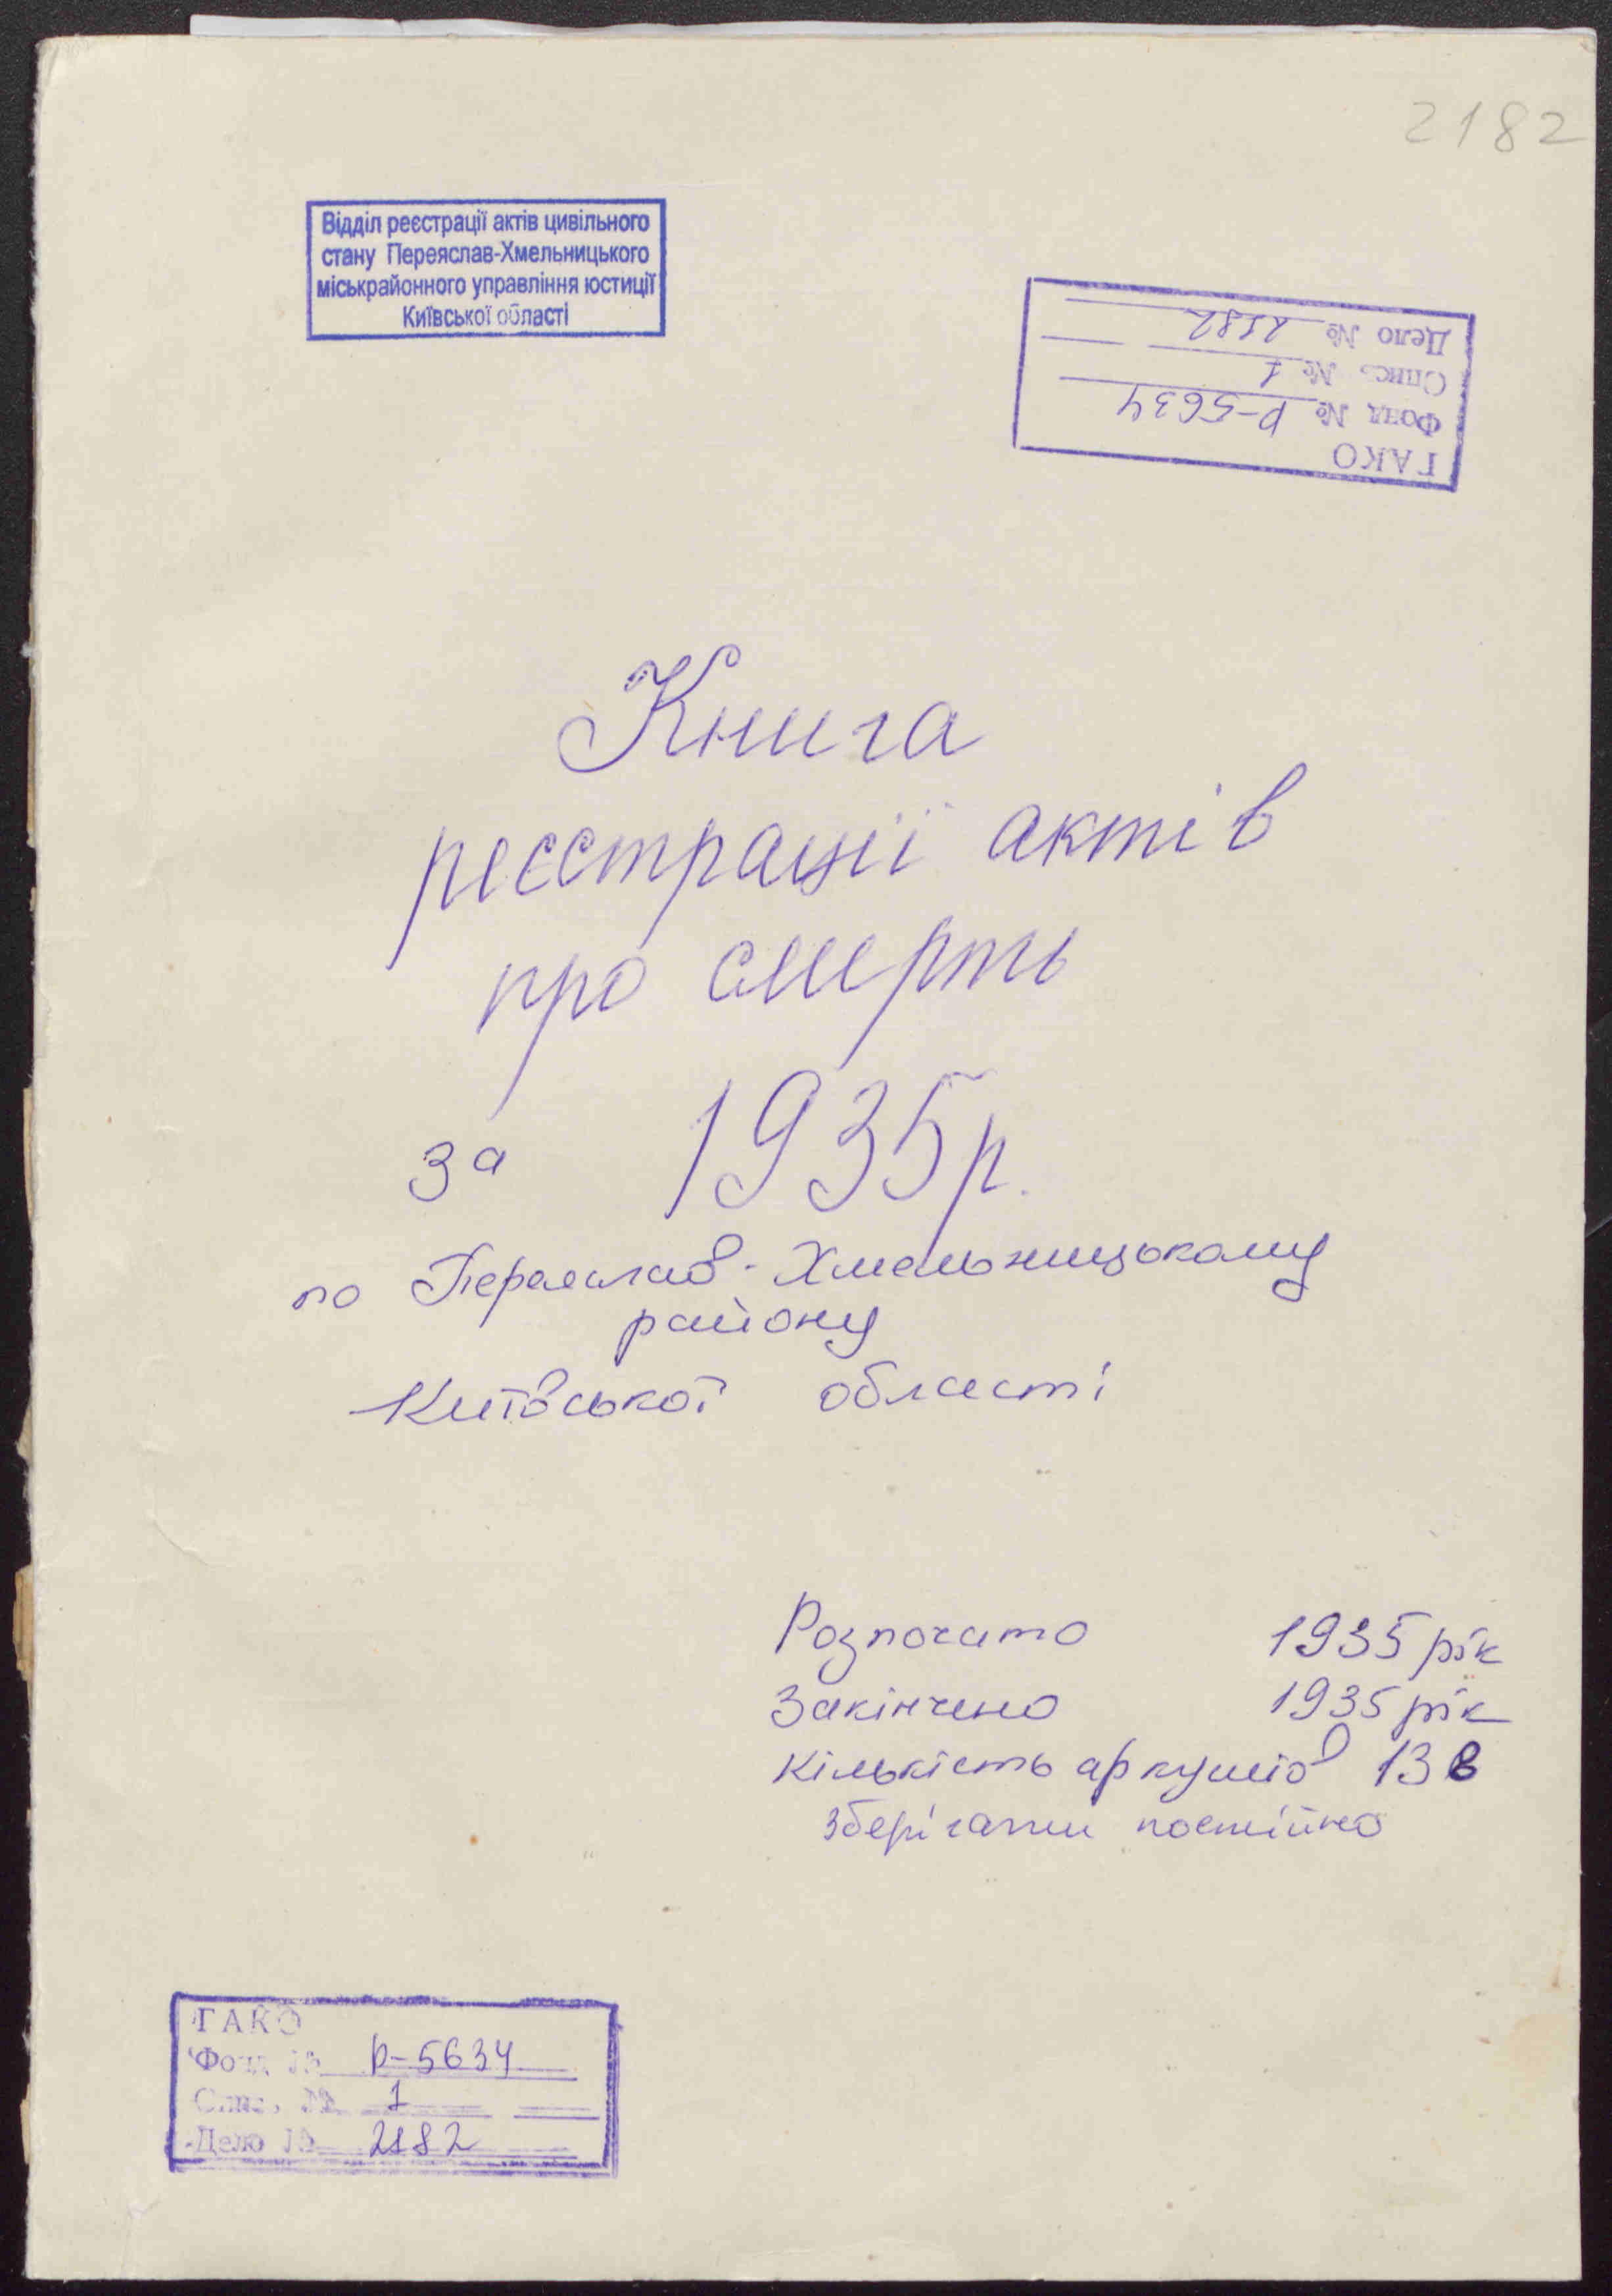 2182
Відділ реєстрації актів цивільного
стану Переяслав-Хмельницького
міськрайонного управління юстиції
Київської області
ГАКО
Фонд № Р-5634
Опись № 1
Дело № 2182
Книга
реєстрації актів
про смерть
за 1935р.
по Переяслав-Хмельницькому
району
Київської області
Розпочато 1935 рік
Закінчено 1935 рік
Кількість аркушів
зберігати постійно
ГАКО
Фонд № Р-5634
Опись № 1
Дело № 2182